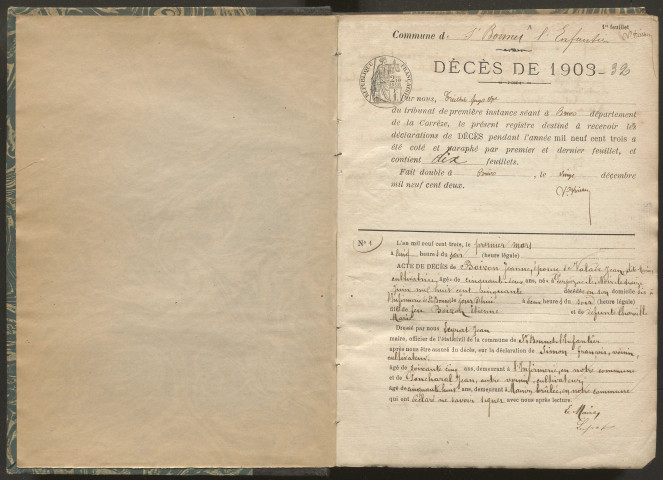 1er feuillet
Commune d St Bonnet l'Enfantier
RÉPUBLIQUE FRANÇAISE
DÉCÈS DE 1903 - 32
Par nous,
du tribunal de première instance séant à Brive département
de la Corrèze, le présent registre destiné à recevoir les
déclarations de DÉCÈS pendant l'année mil neuf cent trois a
été coté et paraphé par premier et dernier feuillet, et
contient dix feuillets.
Fait double à Brive, le vingt décembre
mil neuf cent deux.
No 1
L'an mil neuf cent trois, le premier mars
à cinq heures du soir (heure légale)
ACTE DE DÉCÈS de Boizon Jeanne, épouse de Jean, dit
cultivatrice, âgé de cinquante deux ans, né à
Juin mil huit cent cinquante décédée en son domicile sis à
l'Infirmerie St Bonnet à heures du soir (heure légale)
fille de feu Boizon Etienne et de défunte
Marie
Dressé par nous Leyrat Jean
maire, officier de l'état civil de la commune de St Bonnet l'Enfantier
après nous être assuré du décès, sur la déclaration de Simon françois, voisin,
cultivateur
âgé de soixante cinq ans, demeurant à l'Infirmerie, en notre commune
et de Jean, autre voisin, cultivateur,
âgé de cinquante huit ans, demeurant à Maison brûlée, en notre commune
qui ont déclaré ne savoir signer avec nous après lecture.
Le Maire,